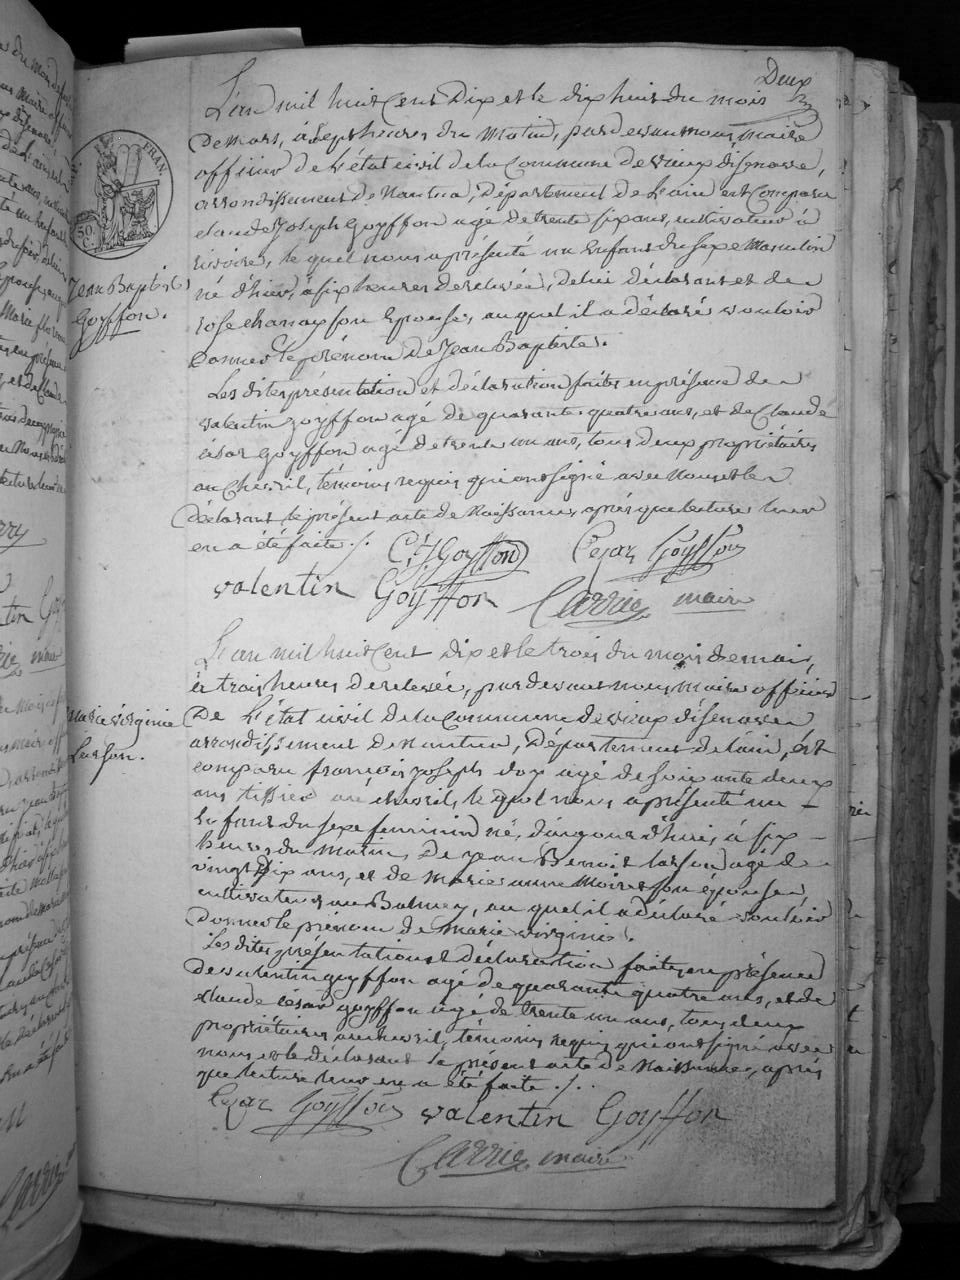 Deux
L'an mil huit Cent Dix et le dix huit du mois
De mars, à Sept heures du Matin, par devant nous, maire
officier de L'état civil de la Commune de vieux d'isenave,
arrondissement de Nantua, Département de L'ain est Comparu
claude Joseph Goyffon agé de trente six ans, cultivateur à
lequel nous a présenté un Enfant du Sexe Masculin
né d'hier, à six heures de relevée, de lui déclarant et de
rose son Epouse, auquel il a déclaré vouloir
Donner le prénom de Jean Baptiste.
Jean Baptiste
Goyffon.
Les dites présentation et déclaration faites en présence de
valentin goyffon agé de quarante quatre ans, et de Claude
césar Goyffon agé de trente un ans, tous deux propriétaires
au Chevril, témoins requis qui ont signé avec Nous et le
Déclarant le présent acte de Naissance, après que lecture leur
en a été faite ./.
C. J. Goyffon Cezar Goyffon
valentin Goyffon Carrier maire
L'an mil huit Cent dix et le trois du mois de mai,
à trois heures de relevée, par devant nous, Maire officier
De L'état civil de la Commune de vieux d'isenave
arrondissement de nantua, Département de l'ain, est
comparu françois joseph agé de soixante deux
ans tissier au chevril, lequel nous a présenté un
Enfant du sexe feminin né, d'aujourd'hui, à six
heures du matin, De jean Benoit agé de
vingt Dix ans, et de Marie anne son épouse
cultivateurs au Balmey, auquel il a déclaré vouloir
Donner le prénom de marie virginie.
Marie virginie
Les dites présentation et déclaration faites en présence
De valentin goyffon agé de quarante quatre ans, et de
claude césar goyffon agé de trente un ans, tous deux
propriétaires au chevril, témoins requis qui ont signé avec
nous et le déclarant le présent acte de Naissance, après
que lecture leur en a été faite ./.
Cezar Goyffon valentin Goyffon
Carrier maire